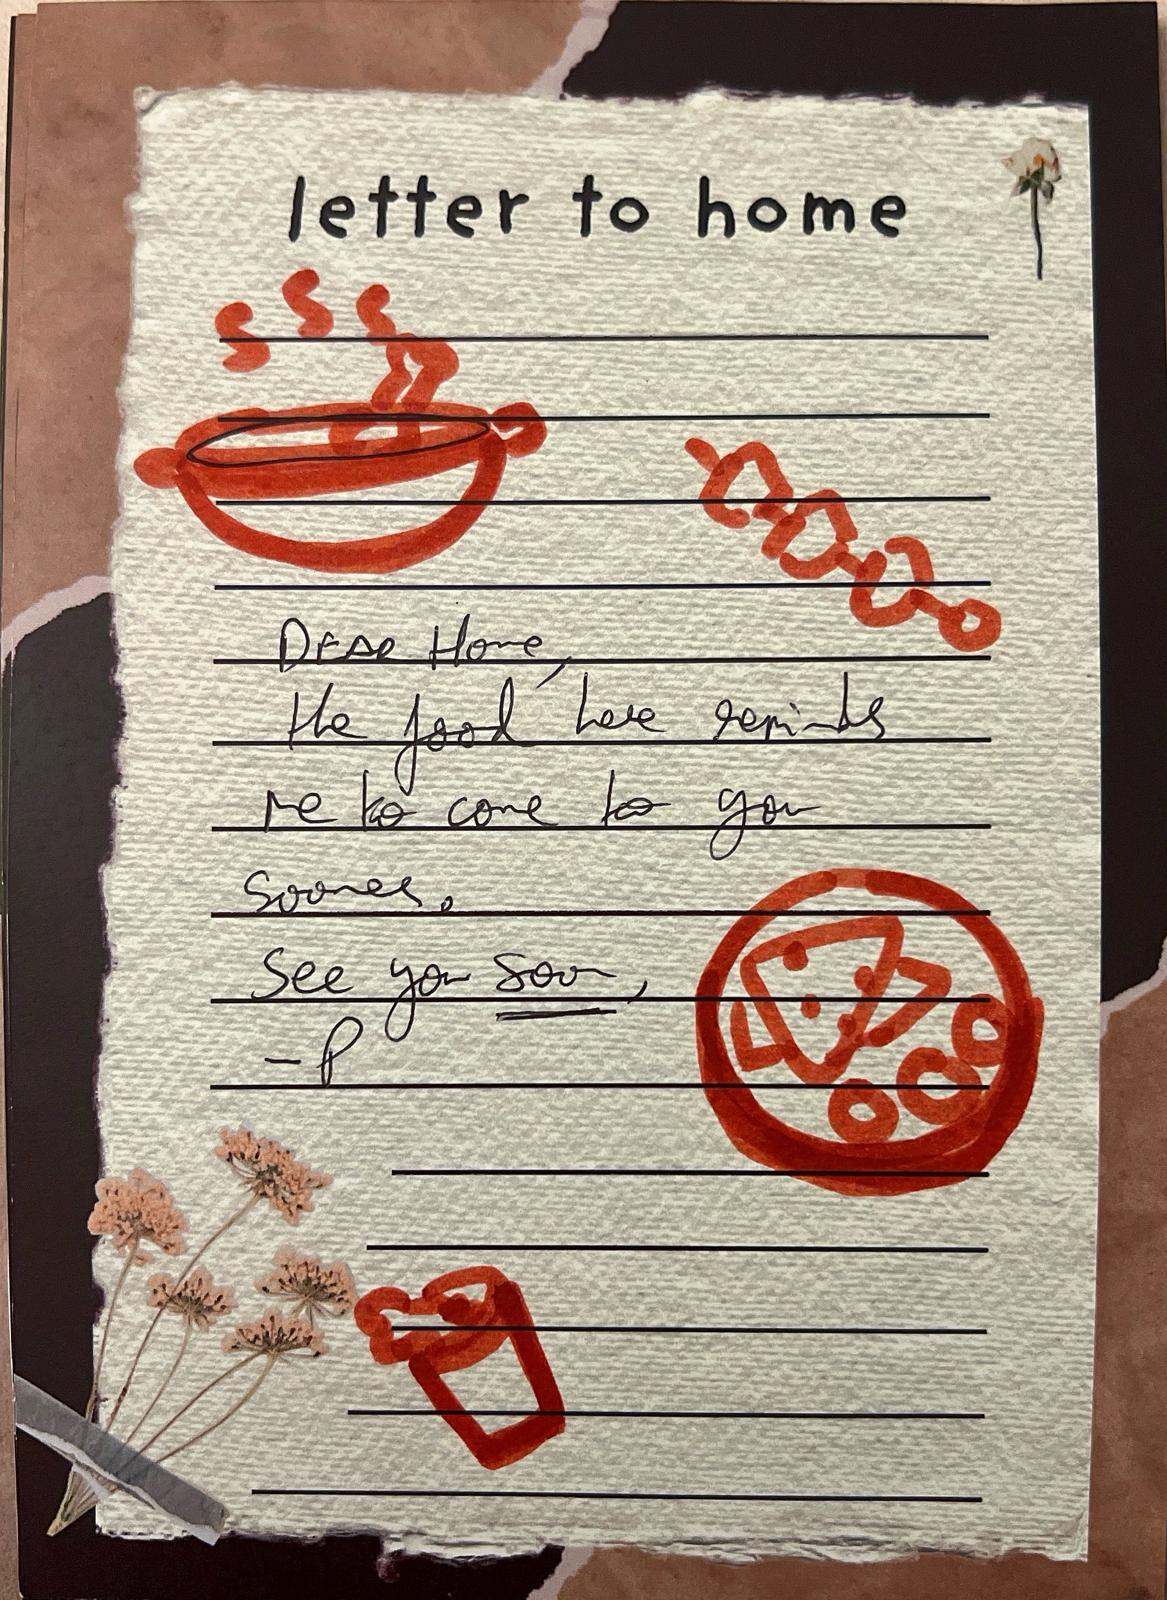 letter to home
Dear Home,
the food here reminds
me to come to you
sooner.
See you soon,
- P